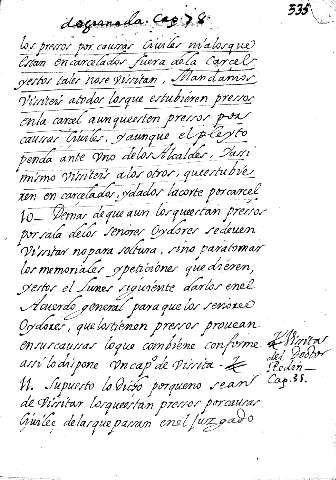 de granada. Cap. 78.
335
los pressos por causas Civiles ni a los que
estan encarcelados fuera de la Carcel
y estos tales no se visitan, Mandamos
Visiteis a todos los que estubieren pressos
en la carcel aunque esten pressos por
causas Civiles, y aunque el pleyto
penda ante vno de los Alcaldes, y assi
mismo visiteis a los otros, que estubie
ren encarcelados, y dados la corte por carcel
10_ Demas de que aun los que estan pressos
por sala de los Señores Oydores se deuen
Visitar no para soltura, sino para tomar
los memoriales y peticiones que dieren,
y estos el lunes siguiente darlos en el
Acuerdo general para que los señores
Oydores, que los tienen pressos prouean
en sus caussas lo que combiene conforme
assi lo dispone vn capº de Visita
Visitas
del Dotor
Redin
Cap. 38.
11. Supuesto lo dicho porque no se an
de Visitar los que estan pressos por causas
Civiles de las que passan en el Juzgado